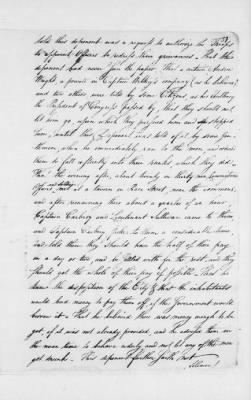 told this deponent was a request to authorize the Troops
to appoint Officers to redress their grievances, That this
deponent had never seen the paper. That a certain Andrew
Wright, a private in Captain company (as he believes)
and two others were told by some Citizens as his Excellency
the President of Congress passed by, that they should not
let him go, upon which they pursued him and stopped
him, until this Deponent was told of it by some Gen-
tlemen, when he immediately ran to the men, and ordered
them to fall directly into their ranks which they did.
That the evening after, about twenty or thirty non Commissioned
Officers met at a tavern in Race Street near the commons,
and after remaining there about a quarter of an hour
Captain Carbery and Lieutenant Sullivan came to them
and Captain Carbery spoke to them, a considerable time,
and told them they should have the half of their pay
in a day or two, and be settled with for the rest, and they
should get the whole of their pay if possible. That he
knew the disposition of the City & that the inhabitants
would lend money to pay them off, if the Government would
borrow it. That he believed there was money enough to be
got, if it was not already provided, and he advised them in
the mean time to behave orderly and not let any of the men
get drunk. This deponent further saith not.